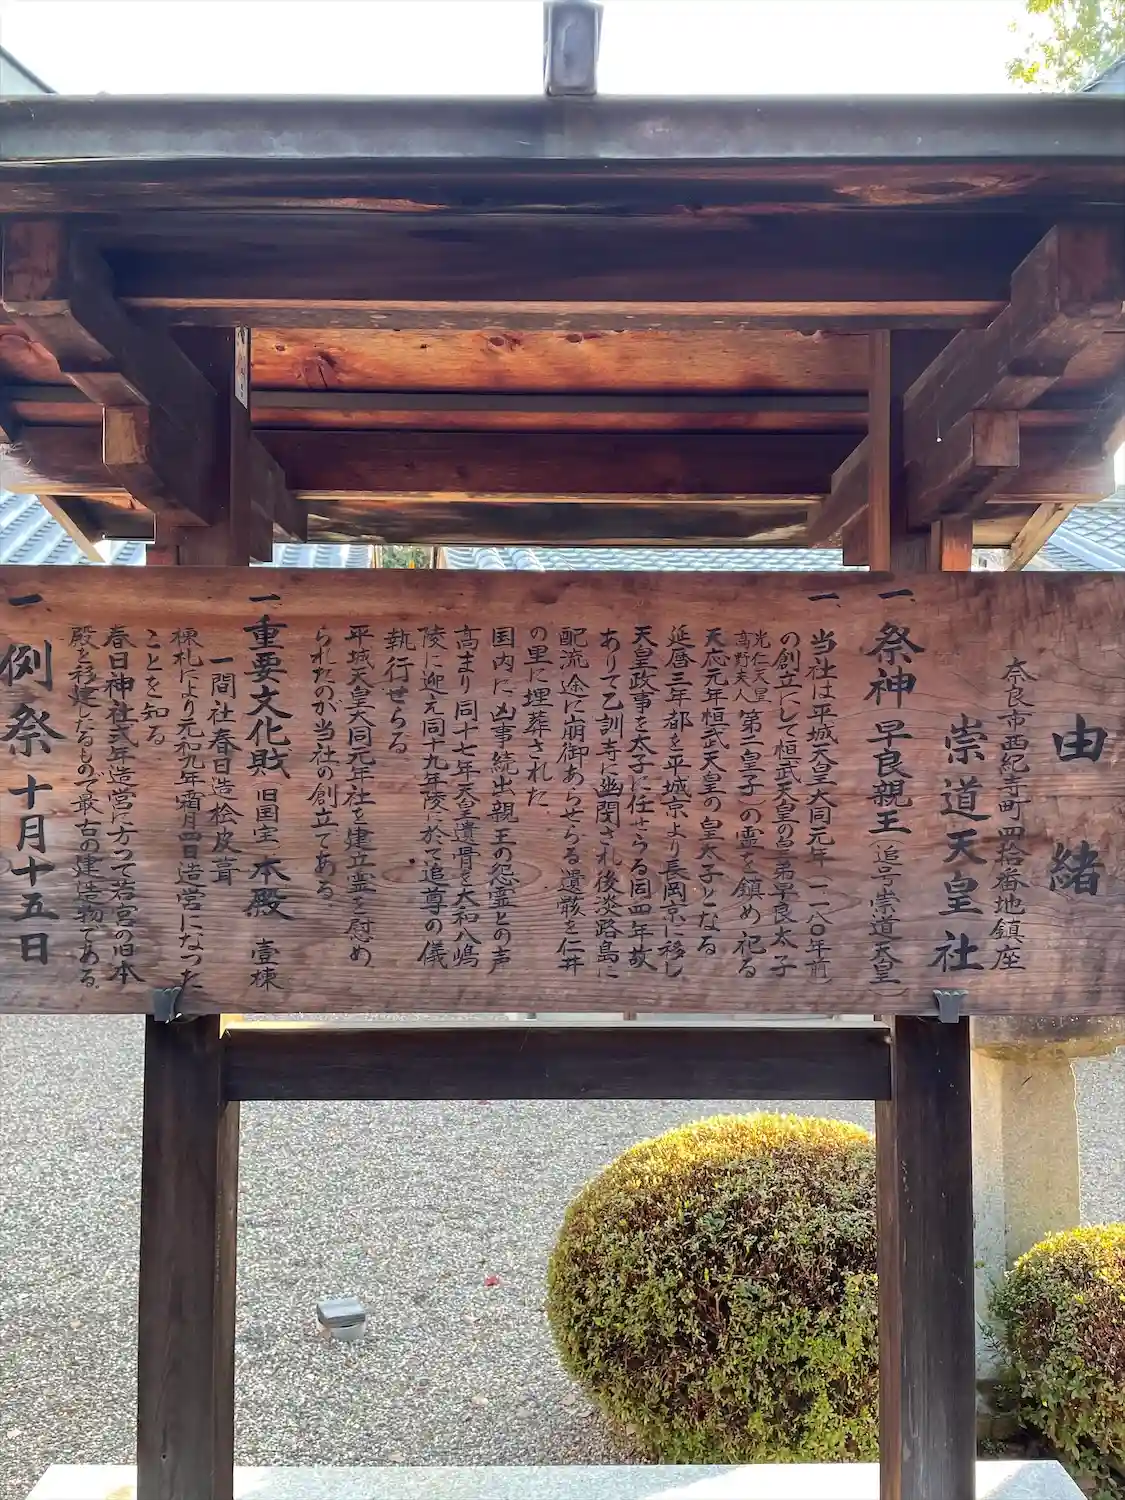 由緒
奈良市西紀寺町四拾番地鎮座
崇道天皇社
一、祭神 早良親王(追号崇道天皇)
一、当社は平城天皇大同元年(一一八〇年前)
の創立にして恒武天皇の皇弟早良太子
(光仁天皇高野夫人第二皇子)の霊を鎮め祀る
天応元年恒武天皇の皇太子となる
延暦三年都を平城京より長岡京に移し
天皇政事を太子に任せらる同四年故
ありて乙訓寺に幽閉され後淡路島に
配流途に崩御あらせらる遺骸を仁井
の里に埋葬された
国内に凶事続出親王の怨霊との声
高まり同十七年天皇遺骨を大和八嶋
陵に迎え同十九年陵に於て追尊の儀
執行せらる
平城天皇大同元年社を建立霊を慰め
られたのが当社の創立である
一、重要文化財 旧国宝 本殿 壹棟
一間社春日造桧皮葺
棟札により元和九年霜月四日造営になった
ことを知る
春日神社式年造営に方つて若宮の旧本
殿を移建したるもので最古の建造物である。
一、例祭 十月十五日